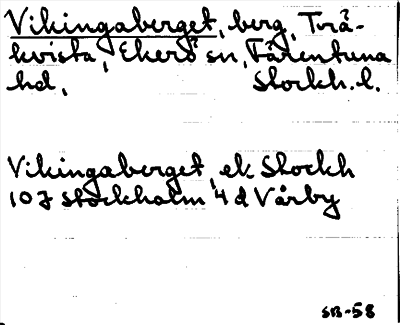 Vikingaberget, berg, Trä-
kvista, Ekerö sn, Färentuna
hd, Stockh. l.
Vikingaberget, ek Stockh
10 J Stockholm 4 d Vårby
SB-58